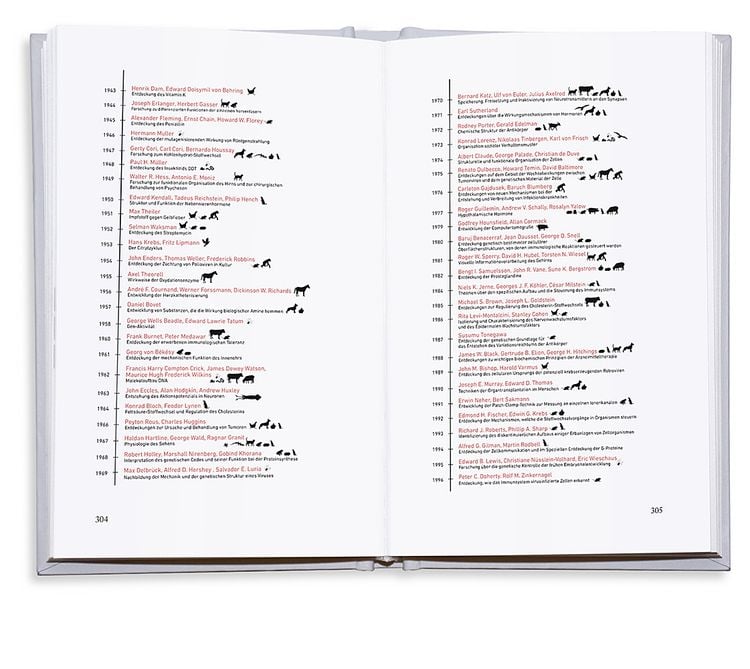 1943 Henrik Dam, Edward Doisymil von Behring
Entdeckung des Vitamin K
1944 Joseph Erlanger, Herbert Gasser
Forschung zu differenzierten Funktionen der einzelnen Nervenfasern
1945 Alexander Fleming, Ernst Chain, Howard W. Florey
Entdeckung des Penizillin
1946 Hermann Muller
Entdeckung der mutagenisierenden Wirkung von Röntgenstrahlung
1947 Gerty Cori, Carl Cori, Bernardo Houssay
Forschung zum Kohlenhydrat-Stoffwechsel
1948 Paul H. Müller
Entdeckung des Insektizids DDT
1949 Walter R. Hess, Antonio E. Moniz
Forschung zur funktionalen Organisation des Hirns und zur chirurgischen
Behandlung von Psychosen
1950 Edward Kendall, Tadeus Reichstein, Philip Hench
Struktur und Funktion der Nebennierenhormone
1951 Max Theiler
Impfstoff gegen Gelbfieber
1952 Selman Waksman
Entdeckung des Streptomycin
1953 Hans Krebs, Fritz Lipmann
Der Citratzyklus
1954 John Enders, Thomas Weller, Frederick Robbins
Entdeckung der Züchtung von Polioviren in Kultur
1955 Axel Theorell
Wirkweise der Oxydationsenzyme
1956 André F. Cournand, Werner Forssmann, Dickinson W. Richards
Entwicklung der Herzkatheterisierung
1957 Daniel Bovet
Entwicklung von Substanzen, die die Wirkung biologischer Amine hemmen
1958 George Wells Beadle, Edward Lawrie Tatum
Gen-Aktivität
1960 Frank Burnet, Peter Medawar
Entdeckung der erworbenen immunologischen Toleranz
1961 Georg von Békésy
Entdeckung der mechanischen Funktion des Innenohrs
Francis Harry Compton Crick, James Dewey Watson,
1962 Maurice Hugh Frederick Wilkins
Molekülaufbau DNA
1963 John Eccles, Alan Hodgkin, Andrew Huxley
Entstehung des Aktionspotenzials in Neuronen
1964 Konrad Bloch, Feodor Lynen
Fettsäure-Stoffwechsel und Regulation des Cholesterins
1966 Peyton Rous, Charles Huggins
Entdeckungen zur Ursache und Behandlung von Tumoren
1967 Haldan Hartline, George Wald, Ragnar Granit
Physiologie des Sehens
1968 Robert Holley, Marshall Nirenberg, Gobind Khorana
Interpretation des genetischen Codes und seiner Funktion bei der Proteinsynthese
1969 Max Delbrück, Alfred D. Hershey, Salvador E. Luria
Nachbildung der Mechanik und der genetischen Struktur eines Viruses
304
1970 Bernard Katz, Ulf von Euler, Julius Axelrod
Speicherung, Freisetzung und Inaktivierung von Neurotransmittern an den Synapsen
1971 Earl Sutherland
Entdeckungen über die Wirkungsmechanismen von Hormonen
1972 Rodney Porter, Gerald Edelman
Chemische Struktur der Antikörper
1973 Konrad Lorenz, Nikolaas Tinbergen, Karl von Frisch
Organisation sozialer Verhaltensmuster
1974 Albert Claude, George Palade, Christian de Duve
Strukturelle und funktionale Organisation der Zellen
1975 Renato Dulbecco, Howard Temin, David Baltimore
Entdeckungen auf dem Gebiet der Wechselwirkungen zwischen
Tumorviren und dem genetischen Material der Zelle
1976 Carleton Gajdusek, Baruch Blumberg
Entdeckungen von neuen Mechanismen bei der
Entstehung und Verbreitung von Infektionskrankheiten
1977 Roger Guillemin, Andrew V. Schally, Rosalyn Yalow
Hypothalamische Hormone
1979 Godfrey Hounsfield, Allan Cormack
Entwicklung der Computertomografie
1980 Baruj Benacerraf, Jean Dausset, George D. Snell
Entdeckung genetisch bestimmter zellulärer
Oberflächenstrukturen, von denen immunologische Reaktionen gesteuert werden
1981 Roger W. Sperry, David H. Hubel, Torsten N. Wiesel
Visuelle Informationsverarbeitung des Gehirns
1982 Bengt I. Samuelsson, John R. Vane, Sune K. Bergstrom
Entdeckung der Prostaglandine
1984 Niels K. Jerne, Georges J. F. Köhler, César Milstein
Theorien über den spezifischen Aufbau und die Steuerung des Immunsystems
1985 Michael S. Brown, Joseph L. Goldstein
Entdeckungen zur Regulierung des Cholesterin-Stoffwechsels
1986 Rita Levi-Montalcini, Stanley Cohen
Isolierung und Charakterisierung des Nervenwachstumsfaktors
und des Epidermalen Wachstumsfaktors
1987 Susumu Tonegawa
Entdeckung der genetischen Grundlage für
das Entstehen des Variationsreichtums der Antikörper
1988 James W. Black, Gertrude B. Elion, George H. Hitchings
Entdeckung zu wichtigen biochemischen Prinzipien der Arzneimitteltherapie
1989 John M. Bishop, Harold Varmus
Entdeckung des zellulären Ursprungs der potenziell krebserzeugenden Retroviren
1990 Joseph E. Murray, Edward D. Thomas
Techniken der Organtransplantation am Menschen
1991 Erwin Neher, Bert Sakmann
Entwicklung der Patch-Clamp-Technik zur Messung an einzelnen Ionenkanälen
1992 Edmond H. Fischer, Edwin G. Krebs
Entdeckung der Mechanismen, welche die Stoffwechselvorgänge in Organismen steuern
1993 Richard J. Roberts, Phillip A. Sharp
Identifizierung des diskontinuierlichen Aufbaus einiger Erbanlagen von Zellorganismen
1994 Alfred G. Gilman, Martin Rodbell
Entdeckung der Zellkommunikation und im Speziellen Entdeckung der G-Proteine
1995 Edward B. Lewis, Christiane Nüsslein-Volhard, Eric Wieschaus
Forschung über die genetische Kontrolle der frühen Embryonalentwicklung
1996 Peter C. Doherty, Rolf M. Zinkernagel
Entdeckung, wie das Immunsystem virusinfizierte Zellen erkennt
305